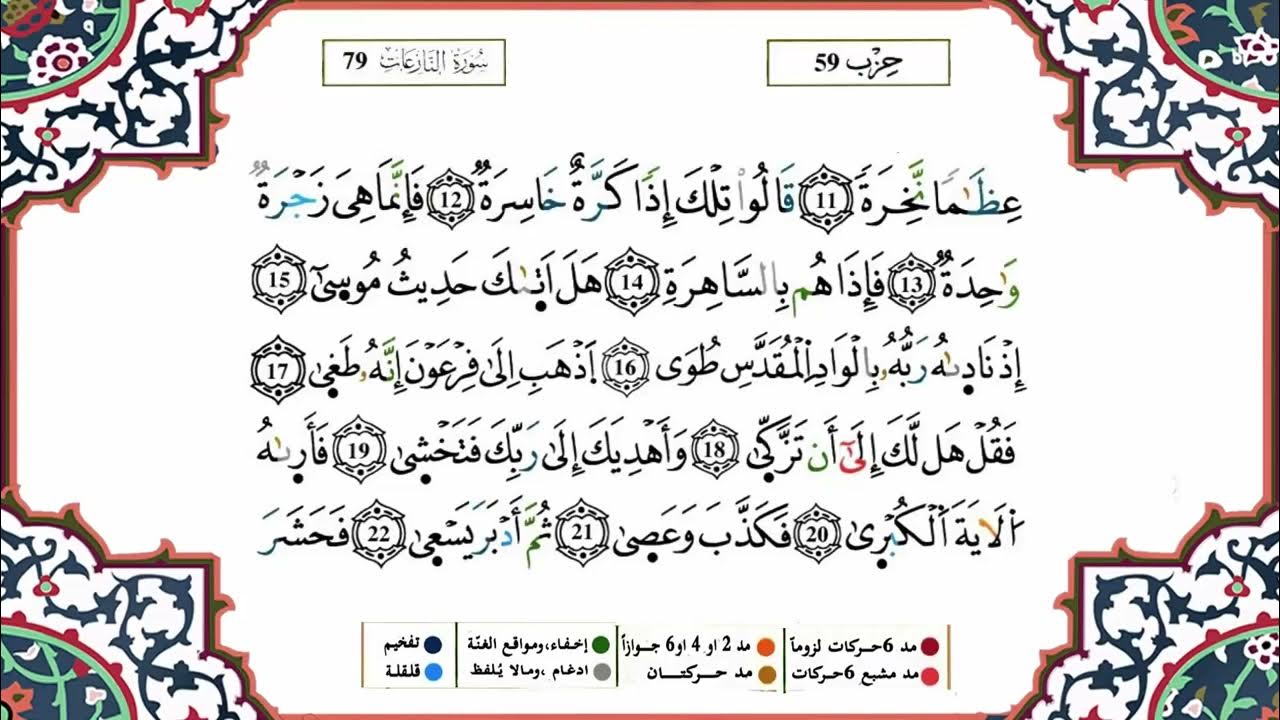 حِزْب 59
سُورَةُ النَّازِعَاتِ 79
عِظَٰمًا نَّخِرَةً 11 قَالُوا۟ تِلْكَ إِذًا كَرَّةٌ خَاسِرَةٌ 12 فَإِنَّمَا هِىَ زَجْرَةٌ
وَٰحِدَةٌ 13 فَإِذَا هُم بِالسَّاهِرَةِ 14 هَلَ اَتٜىٰكَ حَدِيثُ مُوسٜىٰٓ 15
إِذْ نَادٜىٰهُ رَبُّهُۥ بِالْوَادِ اِ۬لْمُقَدَّسِ طُوَى 16 اَ۪ذْهَبِ اِلَىٰ فِرْعَوْنَ إِنَّهُۥ طَغٜىٰ 17
فَقُلْ هَل لَّكَ إِلَىٰٓ أَن تَزَّكّٜىٰ 18 وَأَهْدِيَكَ إِلَىٰ رَبِّكَ فَتَخْشٜىٰ 19 فَأَرٜىٰهُ
اُ۬لَايَةَ اَ۬لْكُبْرٜىٰ 20 فَكَذَّبَ وَعَصٜىٰ 21 ثُمَّ أَدْبَرَ يَسْعٜىٰ 22 فَحَشَرَ
مد 6 حركات لزوماً مد 2 او 4 او 6 جوازاً إخفاء، ومواقع الغنّة تفخيم
مد مشبع 6 حركات مد حركتــان ادغام ، ومالا يُلفظ قلقلة